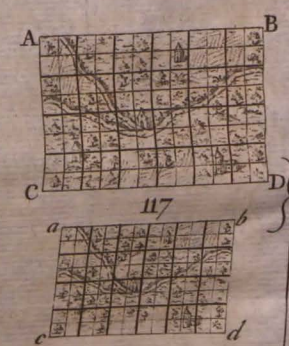 A B
C D
117
a b
c d